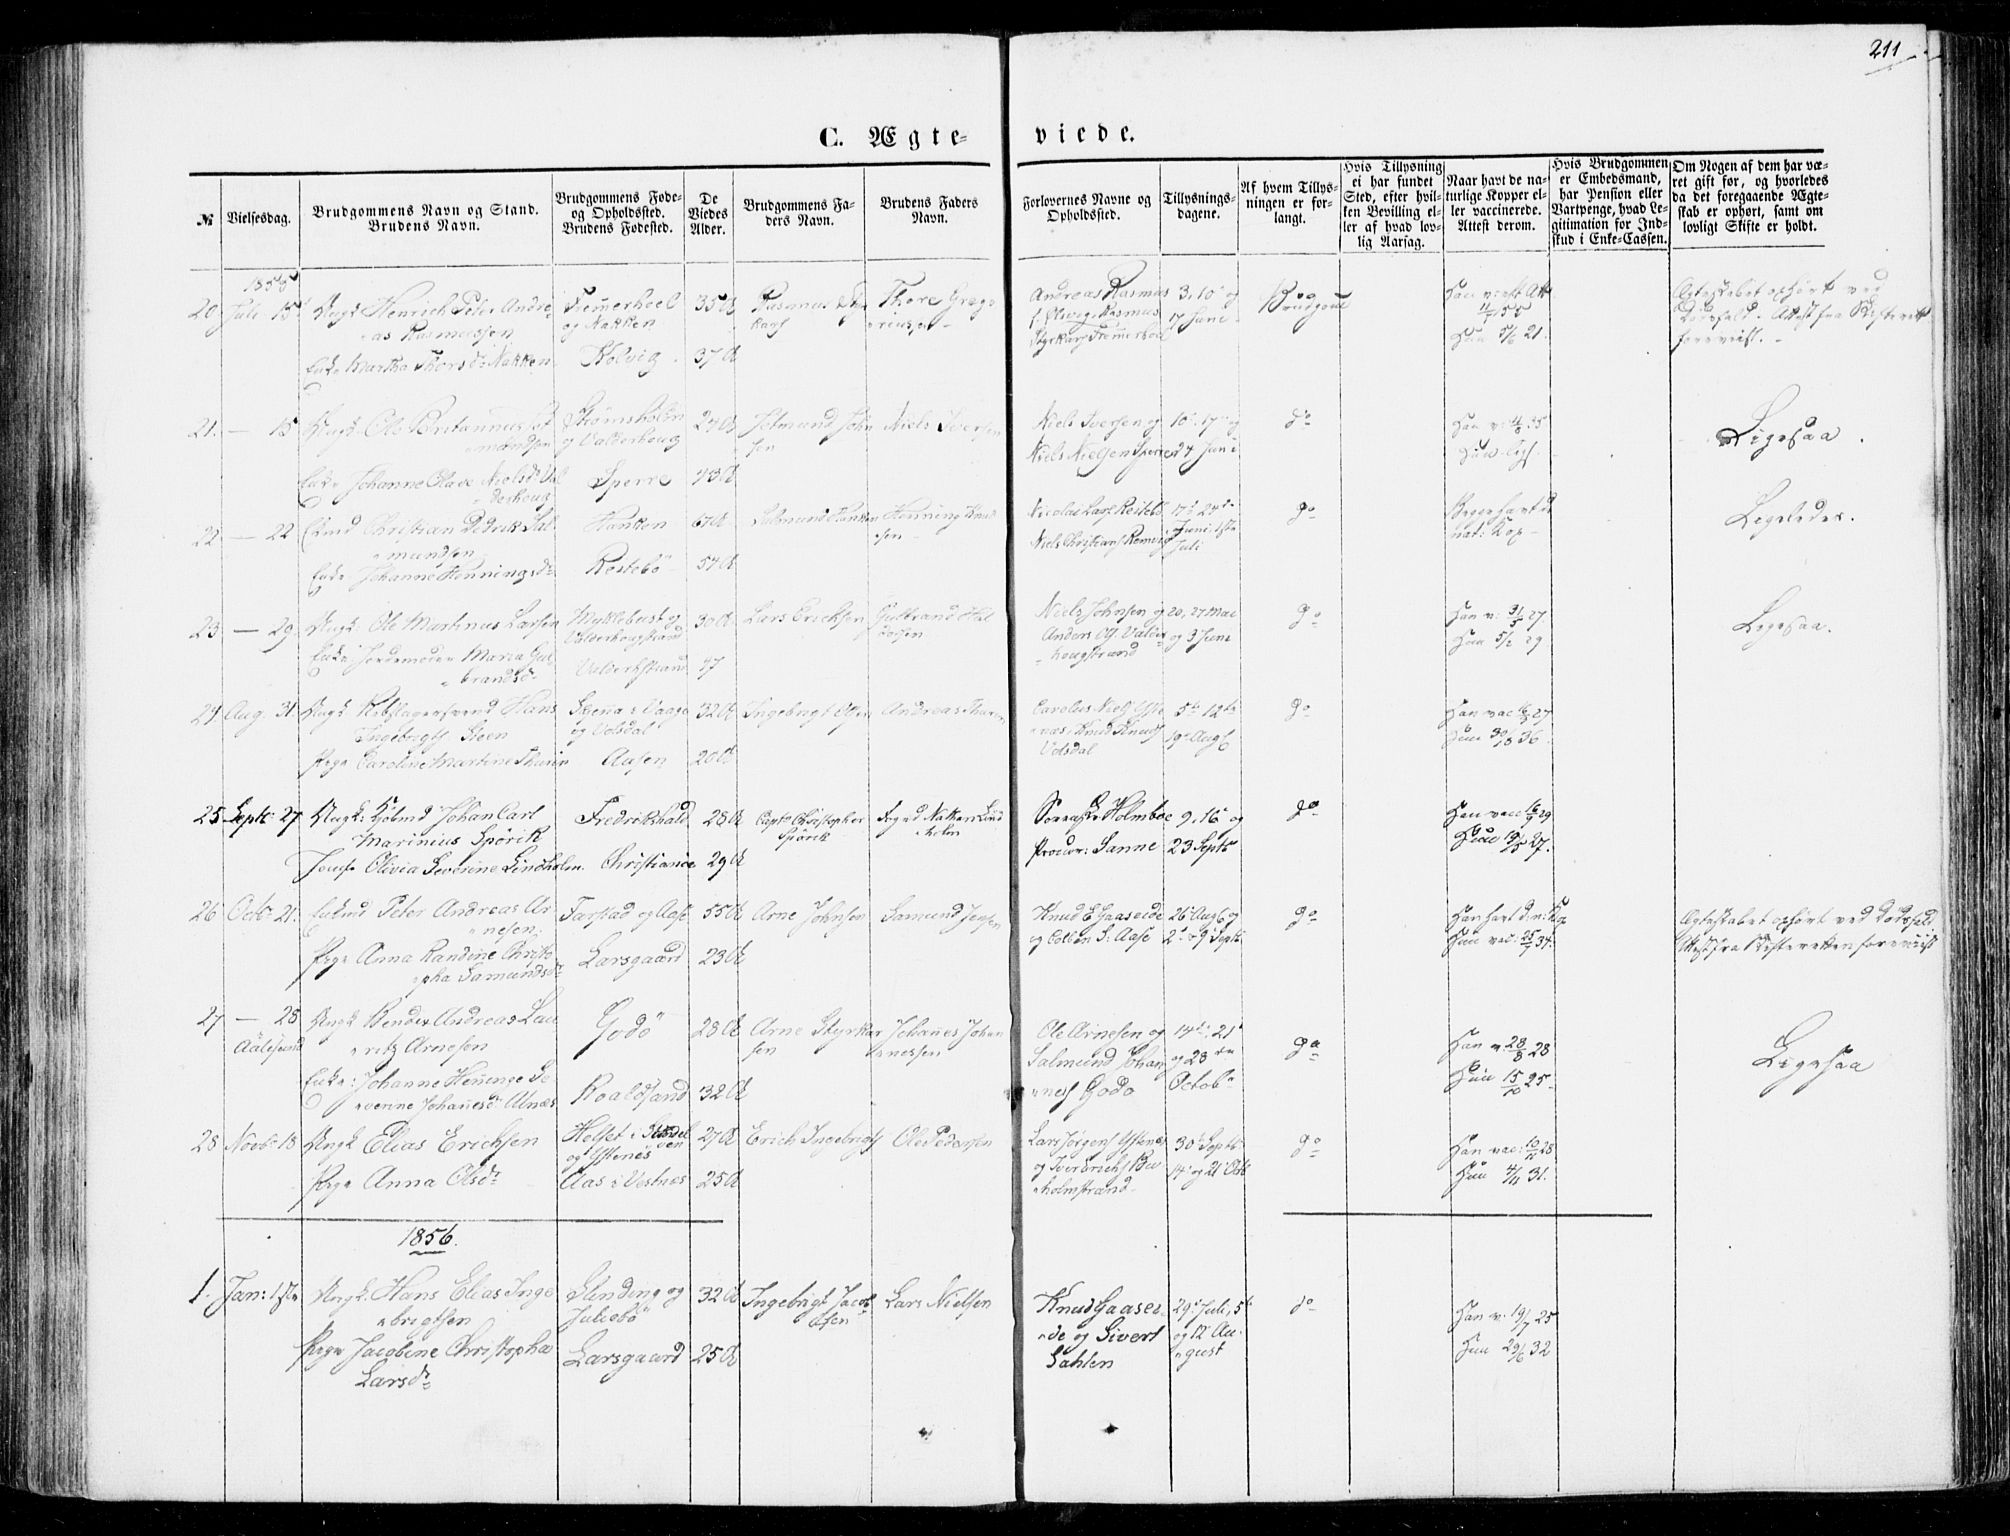 211
C. Ægte-
viede.
№
Vielsesdag.
Brudgommens Navn og Stand.
Brudens Navn.
Brudgommens Føde-
og Opholdssted.
Brudens Fødested.
De
Viedes
Alder.
Brudgommens Fa-
ders Navn.
Brudens Faders
Navn.
Forlovernes Navne og
Opholdssted.
Tillysnings-
dagene.
Af hvem Tillys-
ningen er for-
langt.
Hvis Tillysning
ei har fundet
Sted, efter hvil-
ken Bevilling el-
ler af hvad lov-
lig Aarsag.
Naar havt de na-
turlige Kopper el-
ler vaccinerede.
Attest derom.
Hvis Brudgommen
er Embedsmand,
har Pension eller
Vartpenge, hvad Le-
gitimation for Ind-
skud i Enke-Cassen.
Om Nogen af dem har væ-
ret gift før, og hvorledes
da det foregaaende Ægte-
skab er ophørt, samt om
lovligt Skifte er holdt.
1855
20 Juli 15 Ungk. Henrich Peter Andre
as Rasmussen
Enke Martha Thorsdr Nakken
og Nakken
Kolvig
35 A
37 A
Thore Greg
oriussen
Andreas Rasmus
3, 10 og
17 Juni
Brudgom
Ægteskabet ophørt ved
Dødsfald. Attest fra Skifterett
foreviist.
21. — 15 Ungk. Ole Britannus Jet
mundsen
Enke Johanne Olave Nielsdr Val
derhoug
Strømsholm
og Valderhoug
Sperre
24 A
43 A
Jetmund John
sen
Niels Iversen
Niels Iversen og
Niels Nielsen Sperre
10. 17 og
24 Juni
do
Ligesaa.
22 — 22 Christian Didrik Sal
mundsen
Enke Johanne Henningsdr
Hanken
Restebö
67 A
54 A
Salmund Hanken
Henning Knud
sen
Nicolai Lars Restebö
Niels Christians Remvig
17. 24de
Juni. 1ste
Juli
do
Begge havt d
nat: Kop
Ligeledes.
23 — 29 Ungk. Ole Martinus Larsen
Enke Jordemoder Maria Gul
brandsd
Myklebust og
Valderhougstrand
Valderhstrand
30 A
47
Lars Ericksen
Gulbrand Hal
vorsen
Niels Johnsen og
Anders Ol. Valder
hougstrand
20, 27 Mai
og 3 Juni
do
Han v: 31/5 27
Hun 5/2 29
Ligesaa.
24 Aug. 31. Ungk. Rebslagersvend Hans
Ingebrigts Steen
Pige Caroline Martine Thurin
Steena i Vaage
og Volsdal
Aasen
32 A
20 A
Ingebrigt Olsen
Andreas Thurin
Carolus Niels Yste
næs. Knud Knuds
Volsdal
5te 12te
19. Aug
do
Han vac 16/9 27
Hun 30/18 36
25 Septb 27 Ungk: Johan Carl
Marinius Spörck
Jomfr Olivia Severine Lindholm
Fredrikshald
Christiania
28 A
29 A
Captn Christopher
Spörck
Foged Nathan Lind
holm
Sorensk Holmboe
Procur: Sanne
9, 16 og
23 Septb
do
Han vacc 16/9 29
Hun 19/5 27.
26 Octb. 21. Enkmd Peter Andreas Ar
nesen
Pige Anna Randine Christo
pha Samundsdr
Farstad og Aase
Larsgaard
55 A
23 A
Arne Johnsen
Samund Jensen
Knud E Gaaseide
og Colben S: Aase
26 Aug og
2. & 9 Septb
do
Han havt d: n: Kop
Hun vac: 25/7 34.
Ægteskabet ophørt ved Dødsfald.
Attest fra Skifteretten foreviist
27 — 28
Aalesund
Ungk Bendix Andreas Lau
ritz Arnesen
Enke: Johanne Henninge Se
verine Johannesdr Alnæs
Godö
Roaldsand
28 A
32 A
Arne Styrkar
sen
Johannes Johan
nessen
Ole Arnesen og
Salmund Johan
nes Godö
14de 21
og 28de
Octob
do
Han v: 28/8 28
Hun 15/10 25
Ligesaa
28 Novb 18 Ungk Elias Erichsen
Pige Anna Olsdr
Helset i
og Ystenes
Aas i Vestnes
27 A
25 A
Erich Ingebrigts
Ole Pedersen
Lars Jørgens Ystenes
holmstrand
30 Septb
14 og 21 Octb
do
Han vac: 10/11 28
Hun 4/11 31.
1856.
1. Jan: 1ste Ungk. Hans Elias Inge
brigtsen
Pige Jacobine Christopha
Larsdr
Slinding og
Juliebö
Larsgaard
32 A
25 A
Ingebrigt Jacob
sen
Lars Nielsen
Knud Gaasei
de og Sivert
Sahlen
29. Juli, 5te
og 12 Au
gust
do
Han v: 19/7 25
Hun 29/6 32